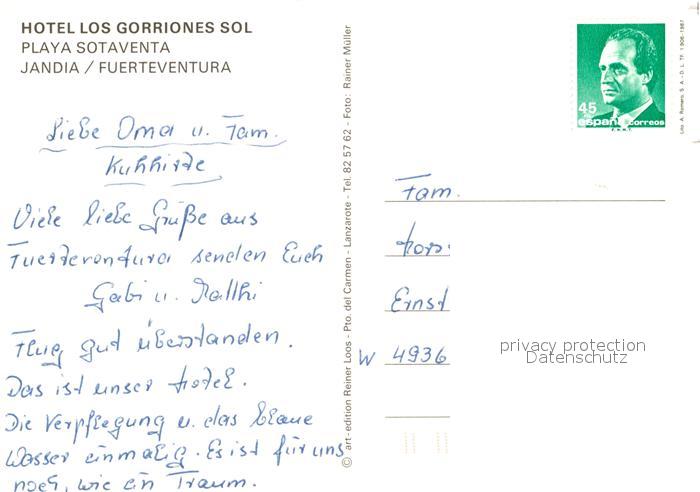 HOTEL LOS GORRIONES SOL
PLAYA SOTAVENTA
JANDIA / FUERTEVENTURA
Liebe Oma u. Fam.
Kuhhirte
Viele liebe Grüße aus
Fuerteventura senden Euch
Gabi u. Matthi
Flug gut überstanden.
Das ist unser Hotel.
Die Verpflegung u. das blaue
Wasser einmalig. Es ist für uns
noch, wie ein Traum.
© art - edition Reiner Loos - Pto. del Carmen - Lanzarote - Tel. 82 57 62 - Foto: Rainer Müller
45
españa correos
F.N.M.T.
Lito A. Romero, S. A. - D. L. TF. 1906-1987
Fam.
Ernst
W 4936
privacy protection
Datenschutz